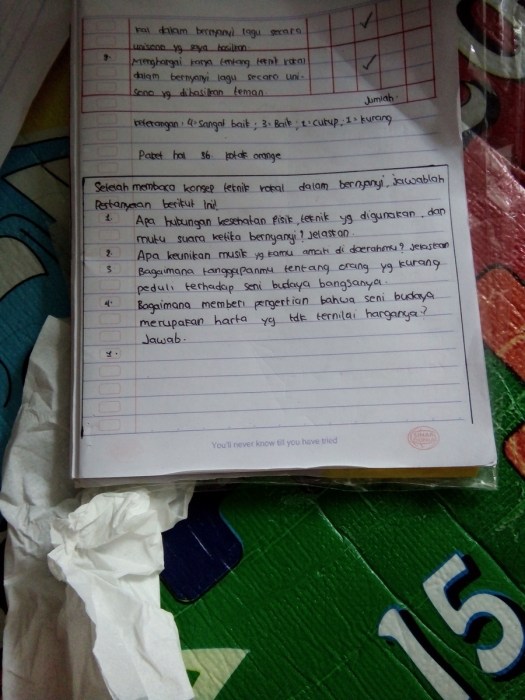 kal dalam bernyanyi lagu secara
unisono yg saya hasilkan.
Menghargai karya tentang teknik vokal
dalam bernyanyi lagu secara uni-
sono yg dihasilkan teman.
Jumlah.
Keterangan : 4 = Sangat baik ; 3 = Baik ; 2 = Cukup, 1 = kurang
Paket hal 36 kotak orange
Setelah membaca konsep teknik vokal dalam bernyanyi, jawablah
Pertanyaan berikut ini!
1. Apa hubungan kesehatan fisik, teknik yg digunakan, dan
mutu suara ketika bernyanyi? Jelaskan.
2. Apa keunikan musik yg kamu amati di daerahmu? Jelaskan
3 Bagaimana tanggapanmu tentang orang yg kurang
peduli terhadap seni budaya bangsanya.
4. Bagaimana memberi pengertian bahwa seni budaya
merupakan harta yg tdk ternilai harganya?
Jawab.
You'll never know till you have tried
15